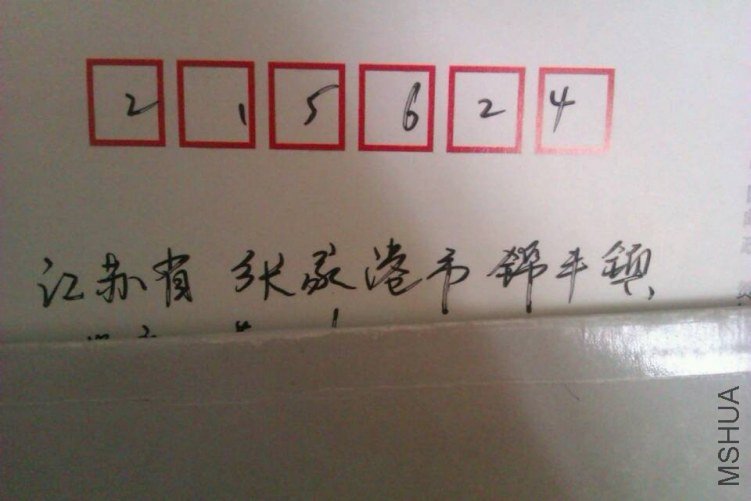 215624
江苏省 张家港市 錦丰鎮
MSHUA